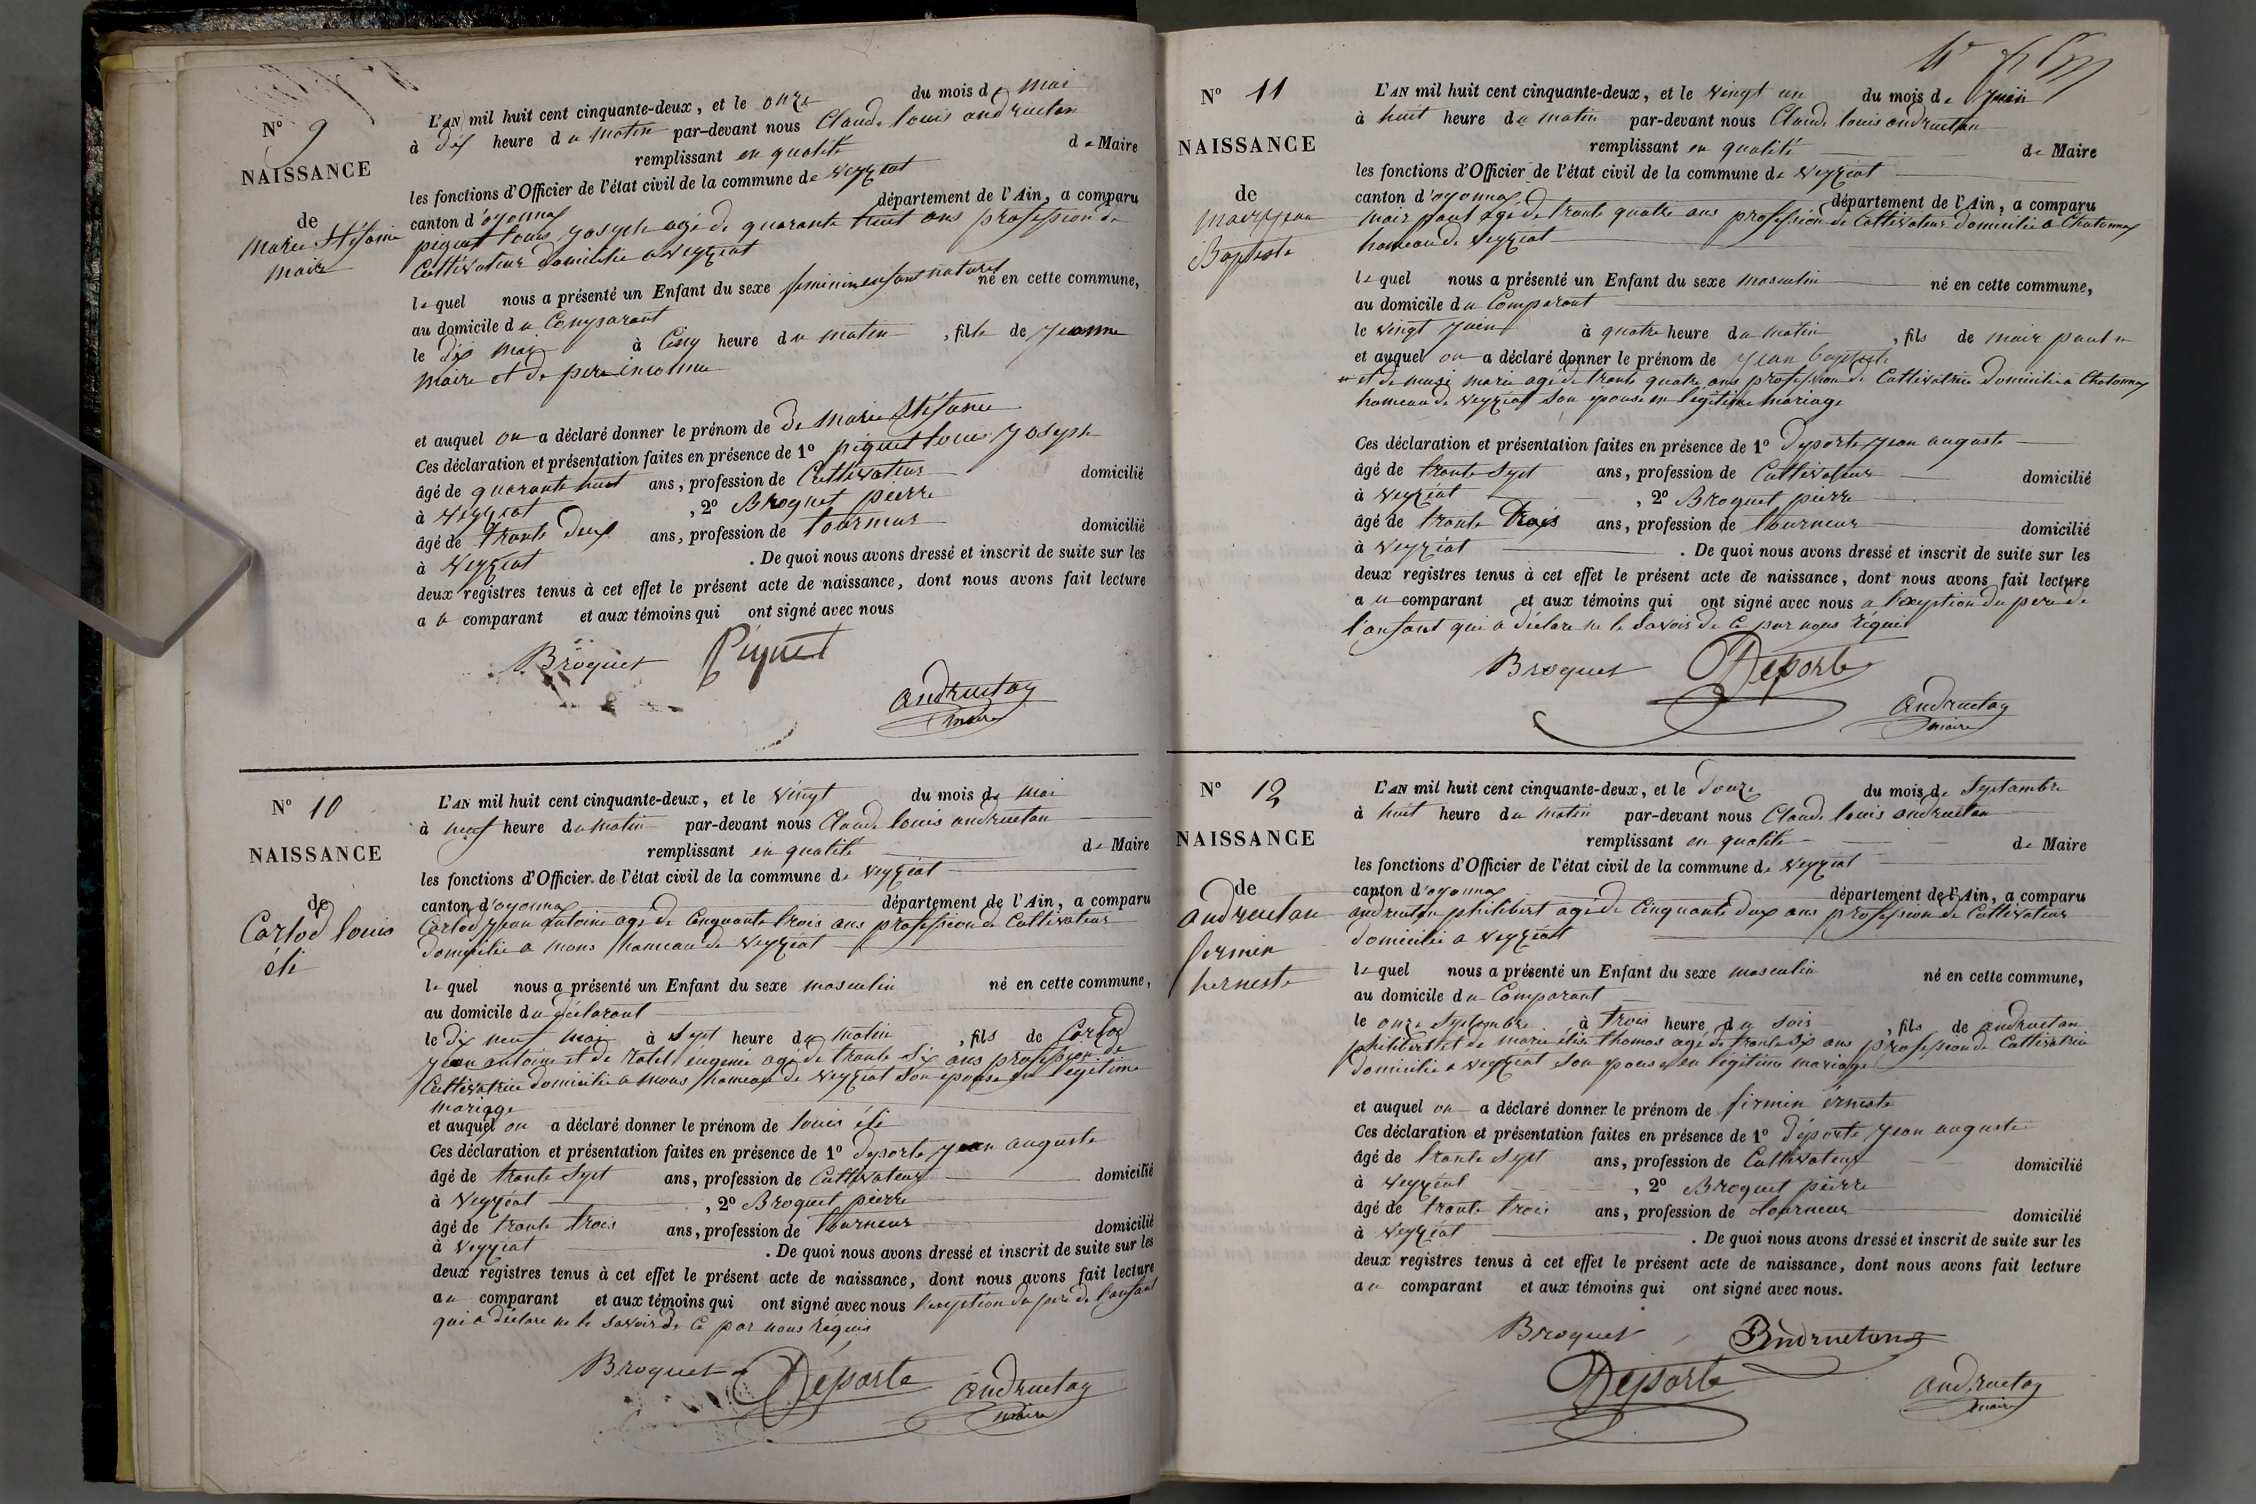 N° 9
NAISSANCE
de
Marie Stéfanie
maire
L'AN mil huit cent cinquante-deux, et le onze du mois de mai
à dix heure du matin par-devant nous Claude louis andruetan
remplissant en qualité de Maire
les fonctions d'Officier de l'état civil de la commune de veyziat
canton d'oyonnax département de l'Ain, a comparu
piquet louis joseph agé de quarante huit ans profession de
Cultivateur domicilié a veyziat
lequel nous a présenté un Enfant du sexe feminin enfant naturel né en cette commune,
au domicile du Comparant
le dix mai à Cinq heure du matin, fille de jeanne
maire et de pere inconnu
et auquel on a déclaré donner le prénom de de marie Stéfanie
Ces déclaration et présentation faites en présence de 1° piquet louis joseph
âgé de quarante huit ans, profession de Cultivateur domicilié
à veyziat, 2° Broquet pierre
âgé de trente deux ans, profession de tourneur domicilié
à veyziat. De quoi nous avons dressé et inscrit de suite sur les
deux registres tenus à cet effet le présent acte de naissance, dont nous avons fait lecture
au comparant et aux témoins qui ont signé avec nous
Broquet Piquet
andruetan
maire
N° 10
NAISSANCE
de
Carlod louis
éli
L'AN mil huit cent cinquante-deux, et le vingt du mois de mai
à neuf heure du matin par-devant nous Claude louis andruetan
remplissant en qualité de Maire
les fonctions d'Officier de l'état civil de la commune de veyziat
canton d'oyonnax département de l'Ain, a comparu
Carlod jean antoine age de Cinquante trois ans profession de Cultivateur
domicilié a mons hameau de veyziat
lequel nous a présenté un Enfant du sexe masculin né en cette commune,
au domicile du déclarant
le dix neuf mai à Sept heure du matin, fils de Carlod
jean antoine et de ratel eugenie agé de trante six ans profession de
Cultivatrice domicilié a mons hameau de veyziat son epouse en légitime
mariage
et auquel on a déclaré donner le prénom de louis éli
Ces déclaration et présentation faites en présence de 1° déporte jean auguste
âgé de trante Sept ans, profession de Cultivateur domicilié
à veyziat, 2° Broquet pierre
âgé de trante trois ans, profession de tourneur domicilié
à veyziat. De quoi nous avons dressé et inscrit de suite sur les
deux registres tenus à cet effet le présent acte de naissance, dont nous avons fait lecture
au comparant et aux témoins qui ont signé avec nous l'exeption du pere de l'anfant
qui a déclaré ne le savoir de ce par nous réquis
Broquet Déporte andruetan
maire
N° 11
NAISSANCE
de
mair jean
Baptiste
L'AN mil huit cent cinquante-deux, et le vingt un du mois de juin
à huit heure du matin par-devant nous Claude louis andruetan
remplissant en qualité de Maire
les fonctions d'Officier de l'état civil de la commune de veyziat
canton d'oyonnax département de l'Ain, a comparu
mair paul agé de trante quatre ans profession de Cultivateur domicilié a Chatonnax
hameau de veyziat
lequel nous a présenté un Enfant du sexe masculin né en cette commune,
au domicile du Comparant
le vingt juin à quatre heure du matin, fils de mair paul
et auquel on a déclaré donner le prénom de jean baptiste
et de marie agé de trante quatre ans profession de Cultivatrice domicilié a Chatonnax
hameau de veyziat son epouse en légitime mariage
Ces déclaration et présentation faites en présence de 1° déporte jean auguste
âgé de trante Sept ans, profession de Cultivateur domicilié
à veyziat, 2° Broquet pierre
âgé de trante trois ans, profession de tourneur domicilié
à veyziat. De quoi nous avons dressé et inscrit de suite sur les
deux registres tenus à cet effet le présent acte de naissance, dont nous avons fait lecture
au comparant et aux témoins qui ont signé avec nous a l'exeption du pere de
l'anfant qui a déclaré ne le savoir de ce par nous réquis
Broquet Déporte
andruetan
maire
N° 12
NAISSANCE
de
andruetan
firmin
herneste
L'AN mil huit cent cinquante-deux, et le douze du mois de Septambre
à huit heure du matin par-devant nous Claude louis andruetan
remplissant en qualité de Maire
les fonctions d'Officier de l'état civil de la commune de veyziat
canton d'oyonnax département de l'Ain, a comparu
andruetan philibert agé de Cinquante deux ans profession de Cultivateur
domicilié a veyziat
lequel nous a présenté un Enfant du sexe masculin né en cette commune,
au domicile du Comparant
le onze Septambre à trois heure du soir, fils de andruetan
philibert et de marie élise thomas agé de trante six ans profession de Cultivatrice
domicilié a veyziat son epouse en légitime mariage
et auquel on a déclaré donner le prénom de firmin érneste
Ces déclaration et présentation faites en présence de 1° déporte jean auguste
âgé de trante Sept ans, profession de Cultivateur domicilié
à veyziat, 2° Broquet pierre
âgé de trante trois ans, profession de tourneur domicilié
à veyziat. De quoi nous avons dressé et inscrit de suite sur les
deux registres tenus à cet effet le présent acte de naissance, dont nous avons fait lecture
au comparant et aux témoins qui ont signé avec nous.
Broquet Andruetan
Déporte andruetan
maire